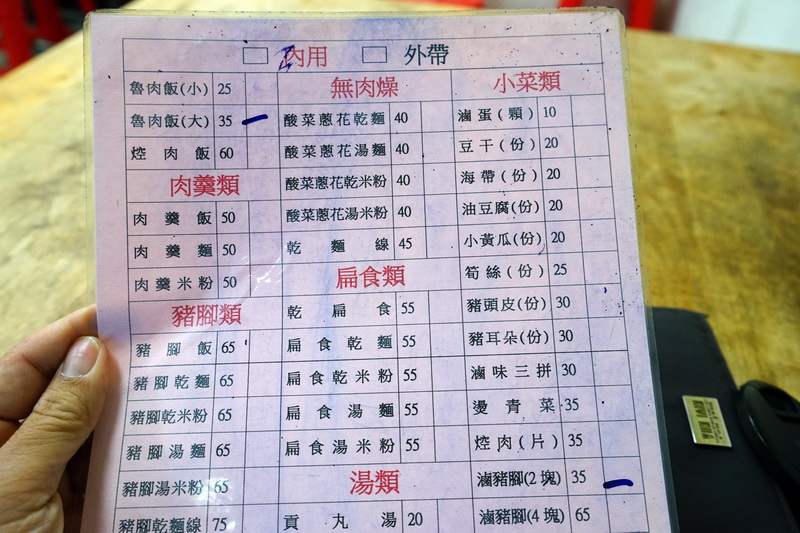 內用 外帶
魯肉飯(小) 25
魯肉飯(大) 35
焢肉飯 60
肉羹類
肉羹飯 50
肉羹麵 50
肉羹米粉 50
豬腳類
豬腳飯 65
豬腳乾麵 65
豬腳乾米粉 65
豬腳湯麵 65
豬腳湯米粉 65
豬腳乾麵線 75
無肉燥
酸菜蔥花乾麵 40
酸菜蔥花湯麵 40
酸菜蔥花乾米粉 40
酸菜蔥花湯米粉 40
乾麵線 45
扁食類
乾扁食 55
扁食乾麵 55
扁食乾米粉 55
扁食湯麵 55
扁食湯米粉 55
湯類
貢丸湯 20
小菜類
滷蛋(顆) 10
豆干(份) 20
海帶(份) 20
油豆腐(份) 20
小黃瓜(份) 20
筍絲(份) 25
豬頭皮(份) 30
豬耳朵(份) 30
滷味三拼 30
燙青菜 35
焢肉(片) 35
滷豬腳(2塊) 35
滷豬腳(4塊) 65